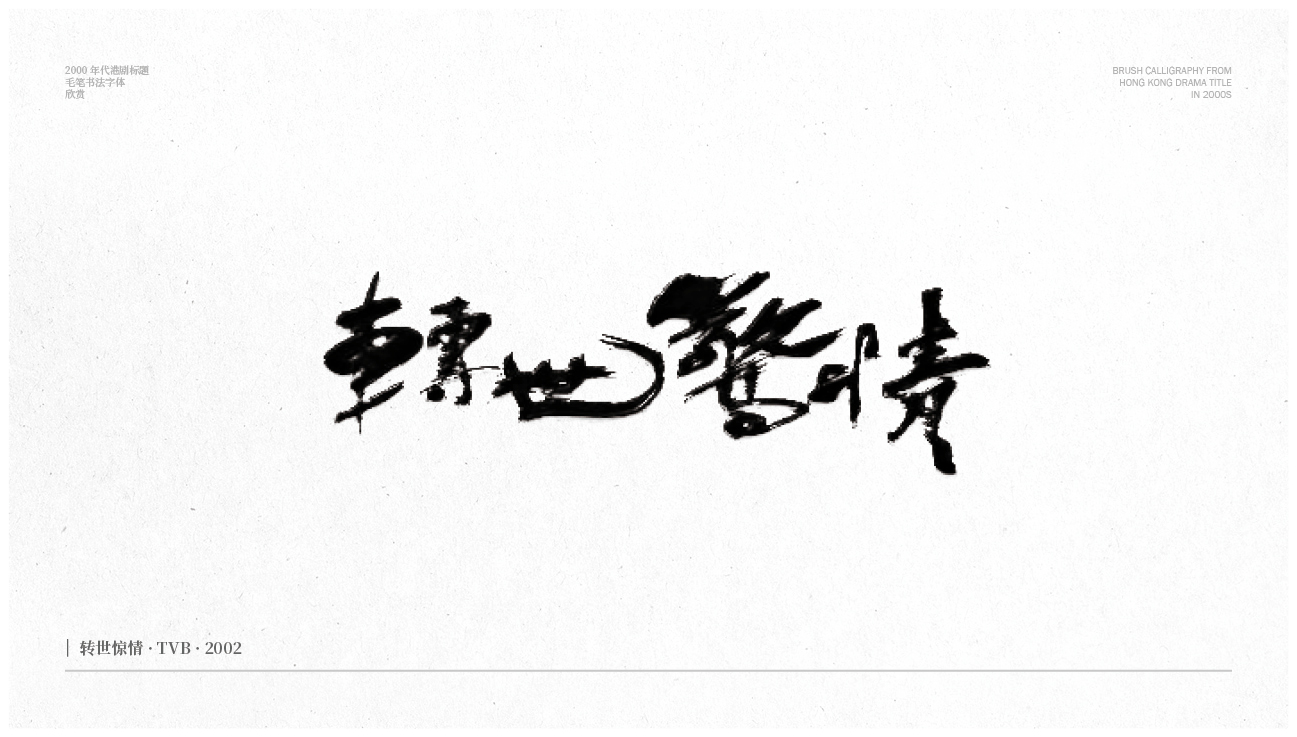 2000 年代港剧标题
毛笔书法字体
欣赏
BRUSH CALLIGRAPHY FROM
HONG KONG DRAMA TITLE
IN 2000S
轉世驚情
转世惊情 · TVB · 2002